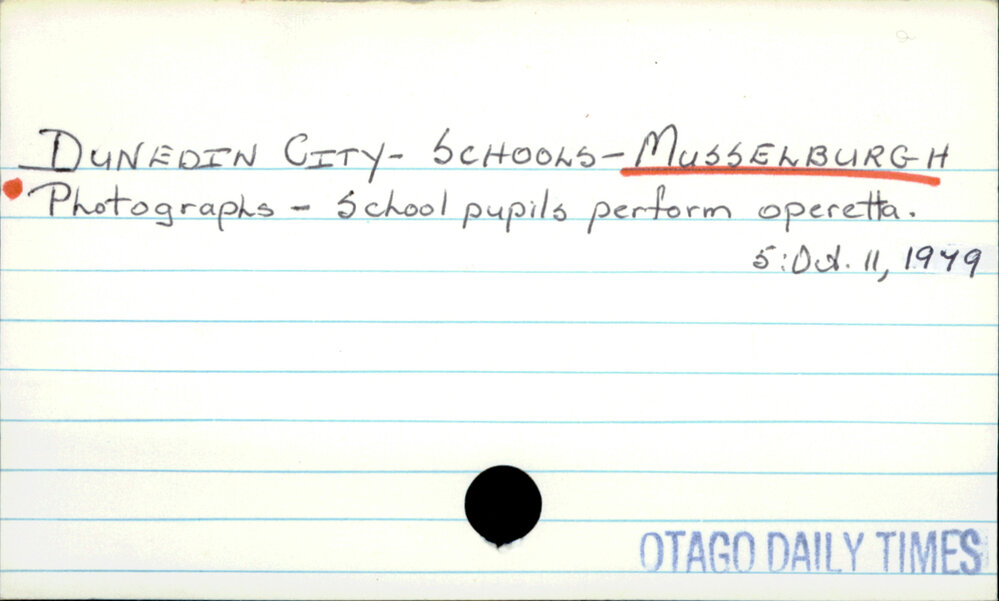 DUNEDIN CITY- SCHOOLS-MUSSELBURGH
Photographs - School pupils perform operetta.
5:Oct. 11, 1979
OTAGO DAILY TIMES